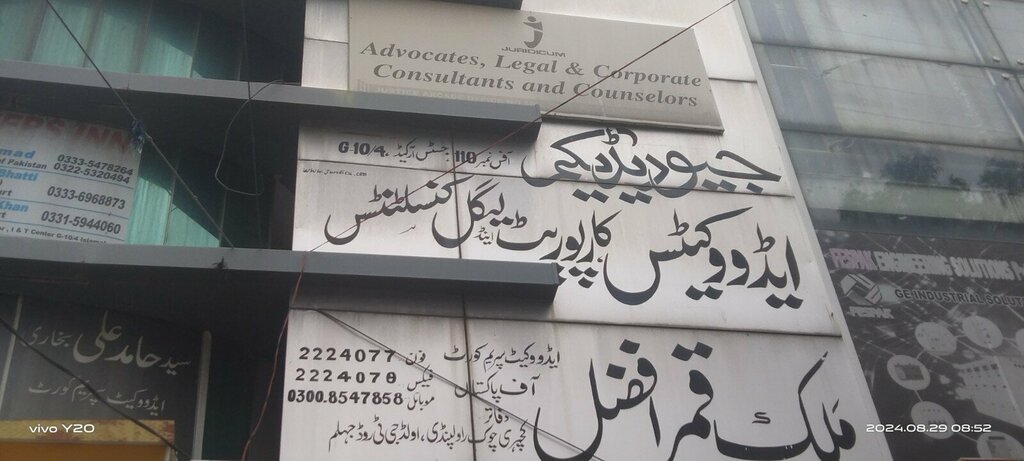 JURIDICUM
Advocates, Legal & Corporate
Consultants and Counselors
جیوریڈیکم
آفس نمبر 110 جسٹس آرکیڈ، G-10/4
ایڈووکیٹس کارپوریٹ اینڈ لیگل کنسلٹنٹس
ملک قمر افضل
ایڈووکیٹ سپریم کورٹ
آف پاکستان
فون 2224077
فیکس 2224078
موبائل 0300.8547858
دفاتر
کچہری چوک راولپنڈی، اولڈ جی ٹی روڈ جہلم
0333-5478264
of Pakistan 0322-5320494
Bhatti
0333-6968873
Khan
0331-5944060
, I & T Center G-10/4 Islamabad
سید حامد علی بخاری
ایڈووکیٹ سپریم کورٹ
ENGINEERING SOLUTIONS
GE INDUSTRIAL SOLUT
vivo Y20
2024.08.29 08:52